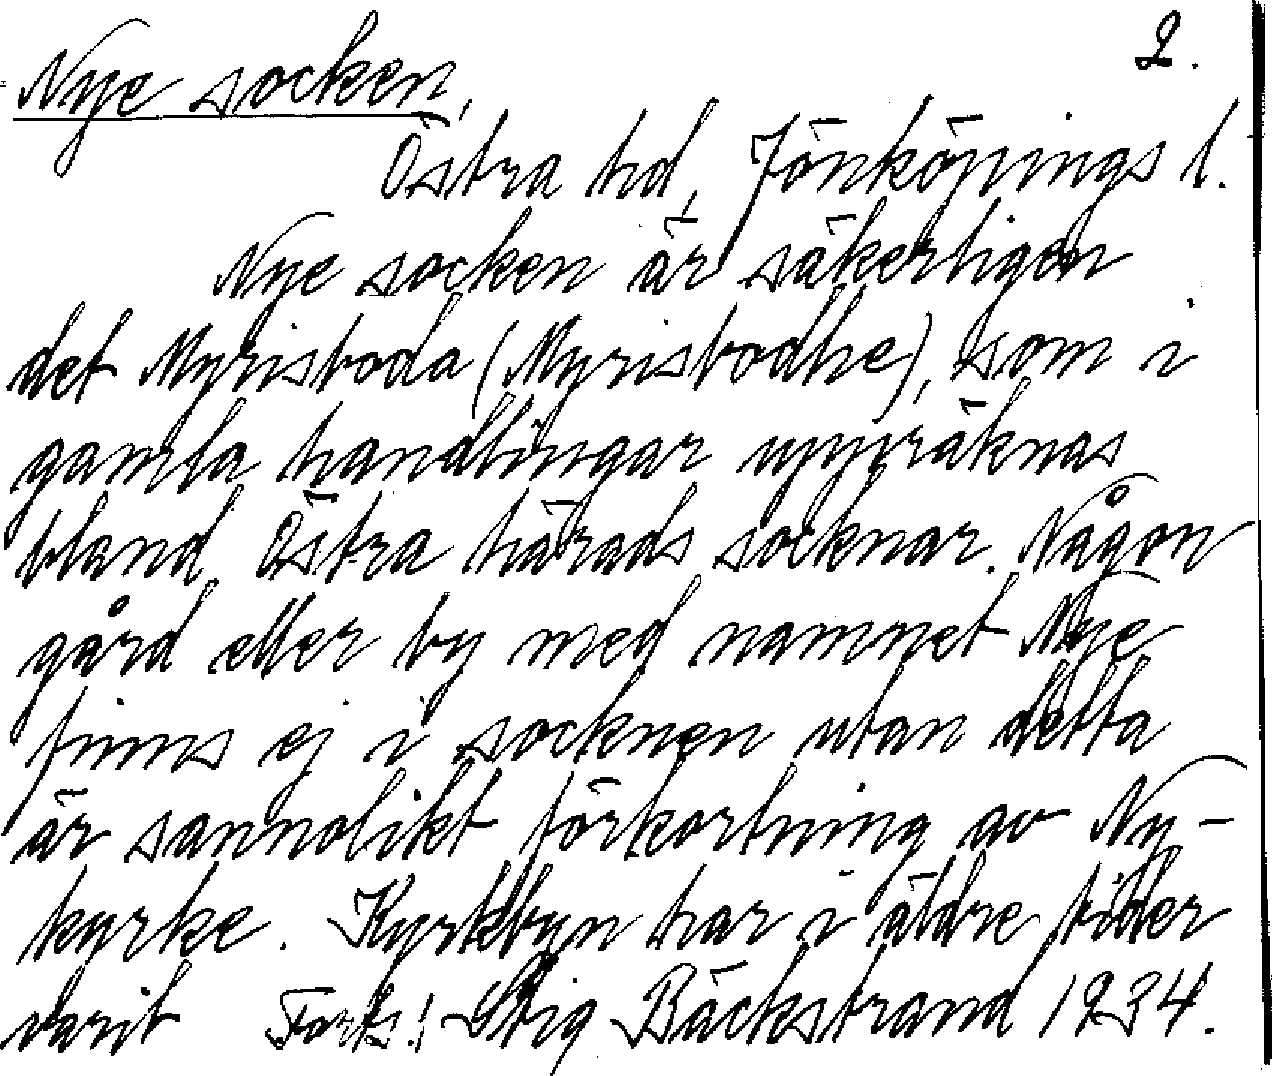 2.
Nye socken,
Östra hd, Jönköpings l.
Nye socken är säkerligen
det Myrisboda (Myrisbodhe), som i
gamla handlingar uppräknas
bland Östra härads socknar. Någon
gård eller by med namnet Nye
finns ej i socknen utan detta
är sannolikt förkortning av Ny-
kyrke. Kyrkbyn har i äldre tider
varit Forts.! Stig Bäckstrand 1934.